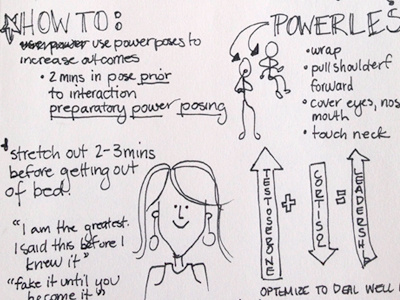 HOW TO:
use power poses to
increase outcomes
• 2 mins in pose prior
to interaction
preparatory power posing
stretch out 2-3 mins
before getting out
of bed.
"I am the greatest.
I said this before I
knew it"
"fake it until you
become it"
POWERLES
• wrap
• pull shoulder
forward
• cover eyes, nos
mouth
• touch neck
TESTOSERONE
+
CORTISOL
=
LEADERSHIP
OPTIMIZE TO DEAL WELL